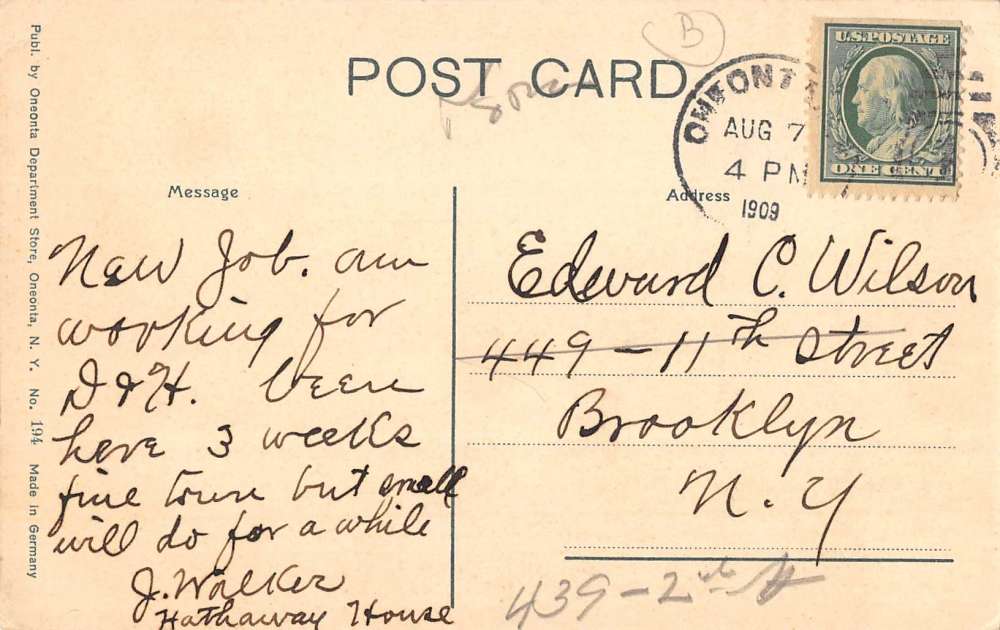 POST CARD
B
U.S. POSTAGE
ONE CENT
ONEONTA
AUG 7
4 PM
1909
Publ. by Oneonta Department Store, Oneonta, N. Y. No. 194 Made in Germany
Message
New Job. am
working for
D & H. been
here 3 weeks
fine town but small
will do for a while
J. Walker
Hathaway House
Address
Edward C. Wilson
449 - 11th Street
Brooklyn
N. Y
439 - 2